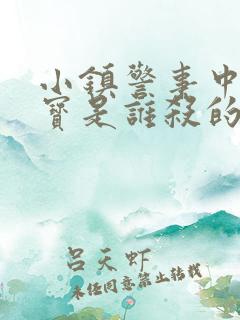 小鎮警事中
寶是誰殺的
呂天虾
未经同意禁止转载